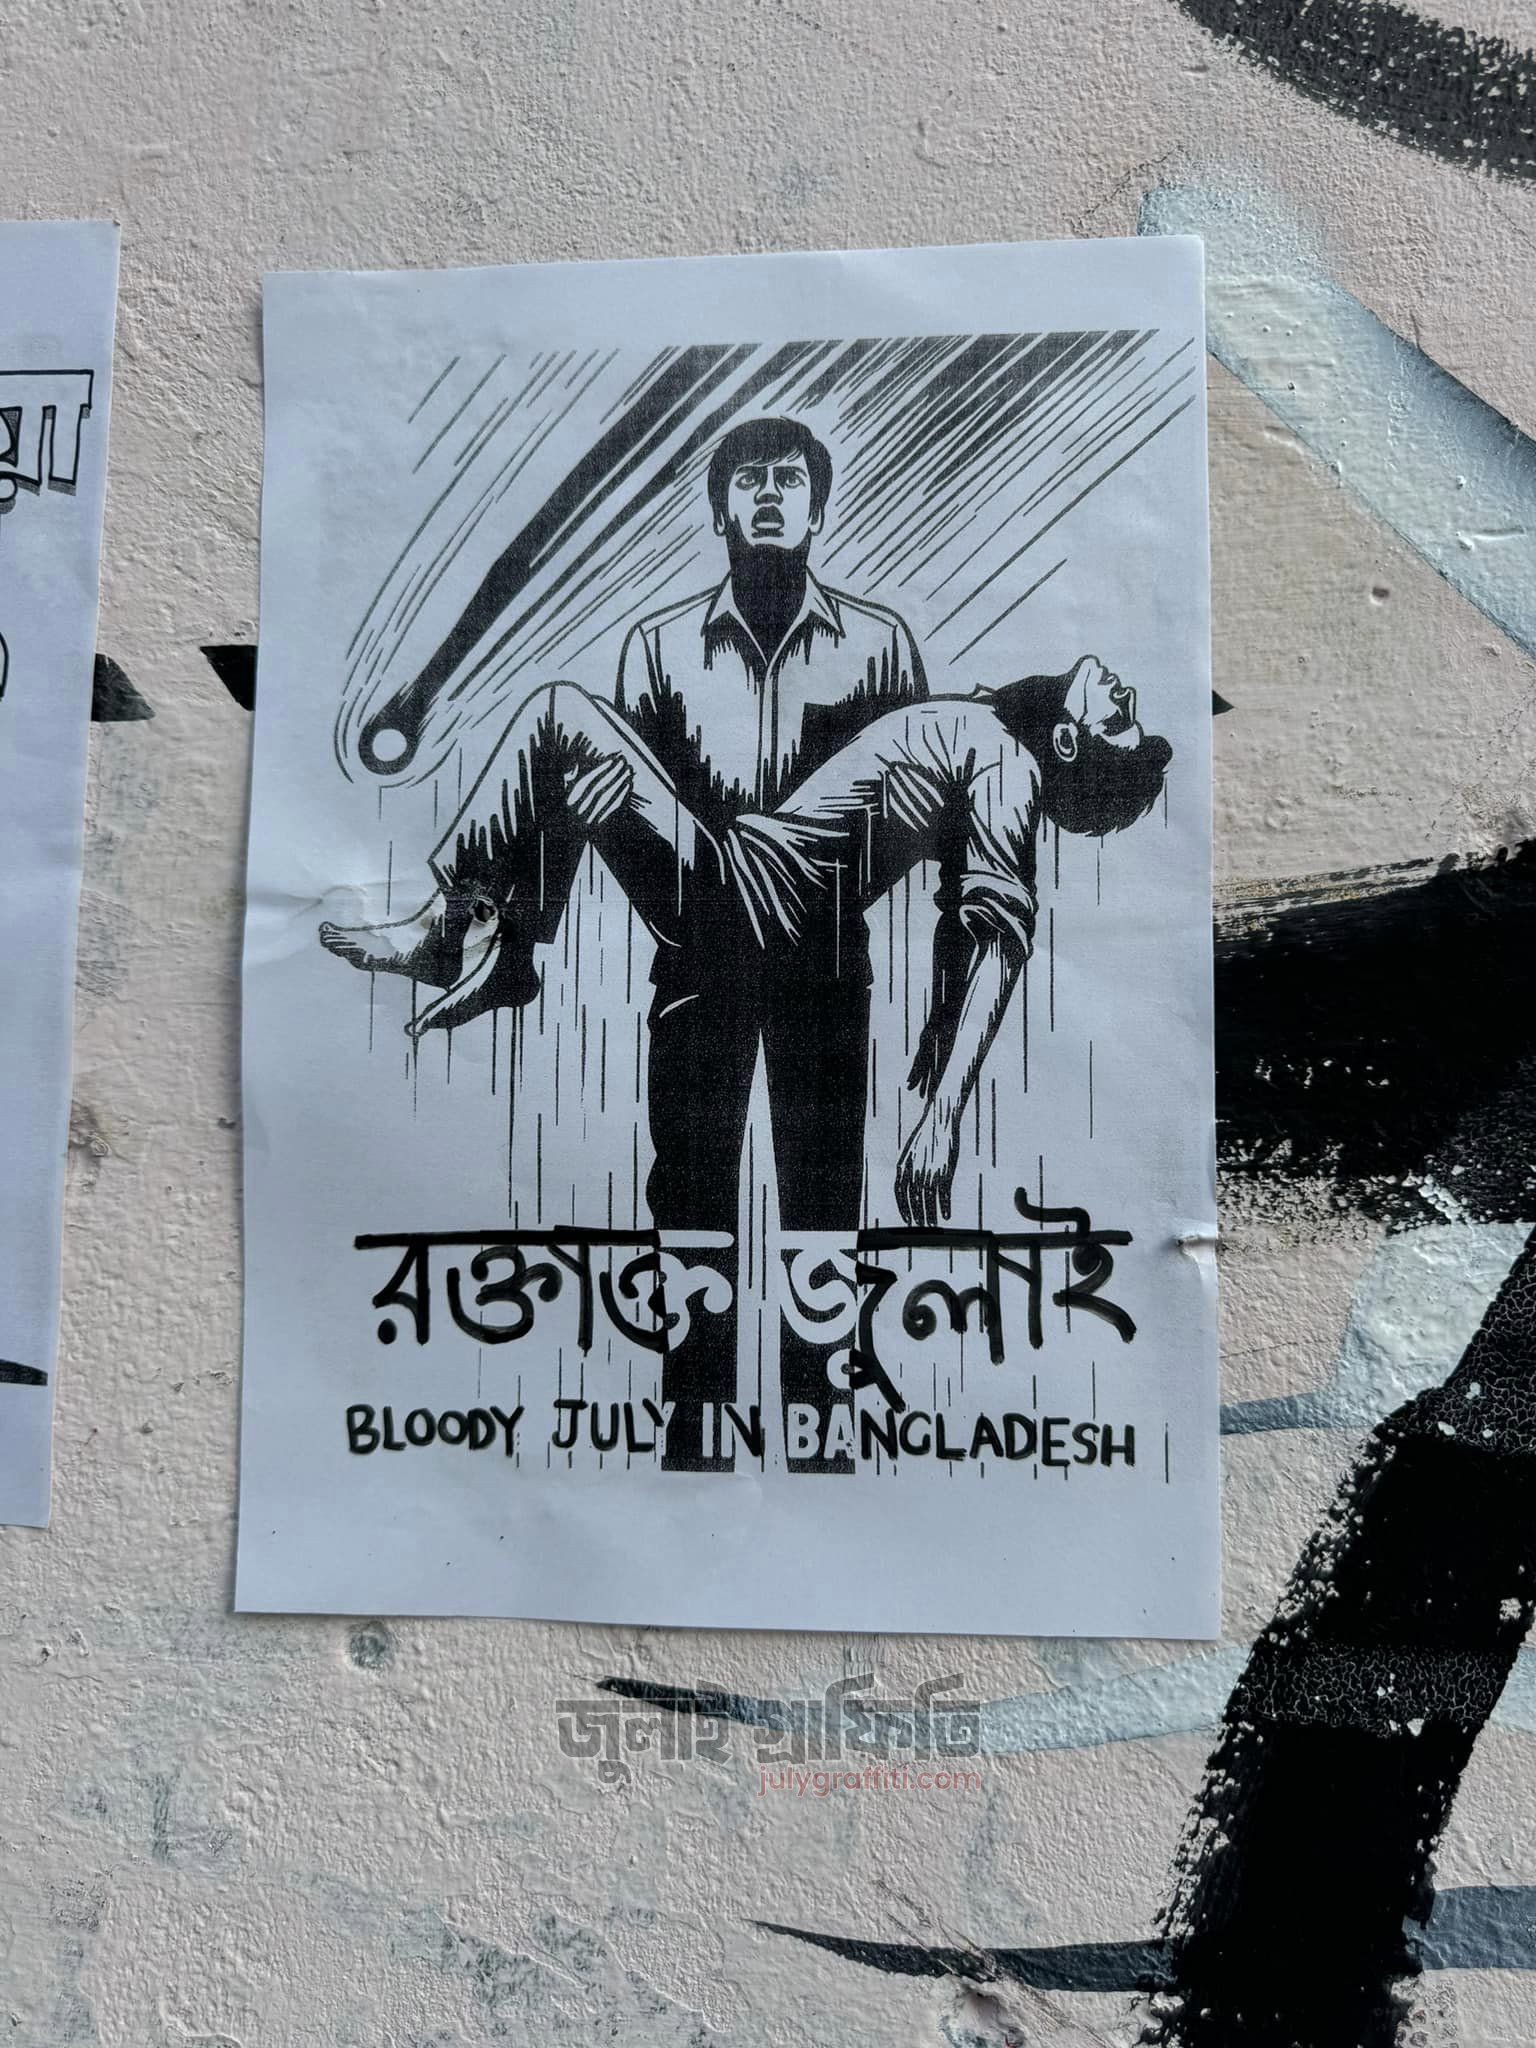 রক্তাক্ত জুলাই
BLOODY JULY IN BANGLADESH
জুলাই গ্রাফিতি
julygraffiti.com